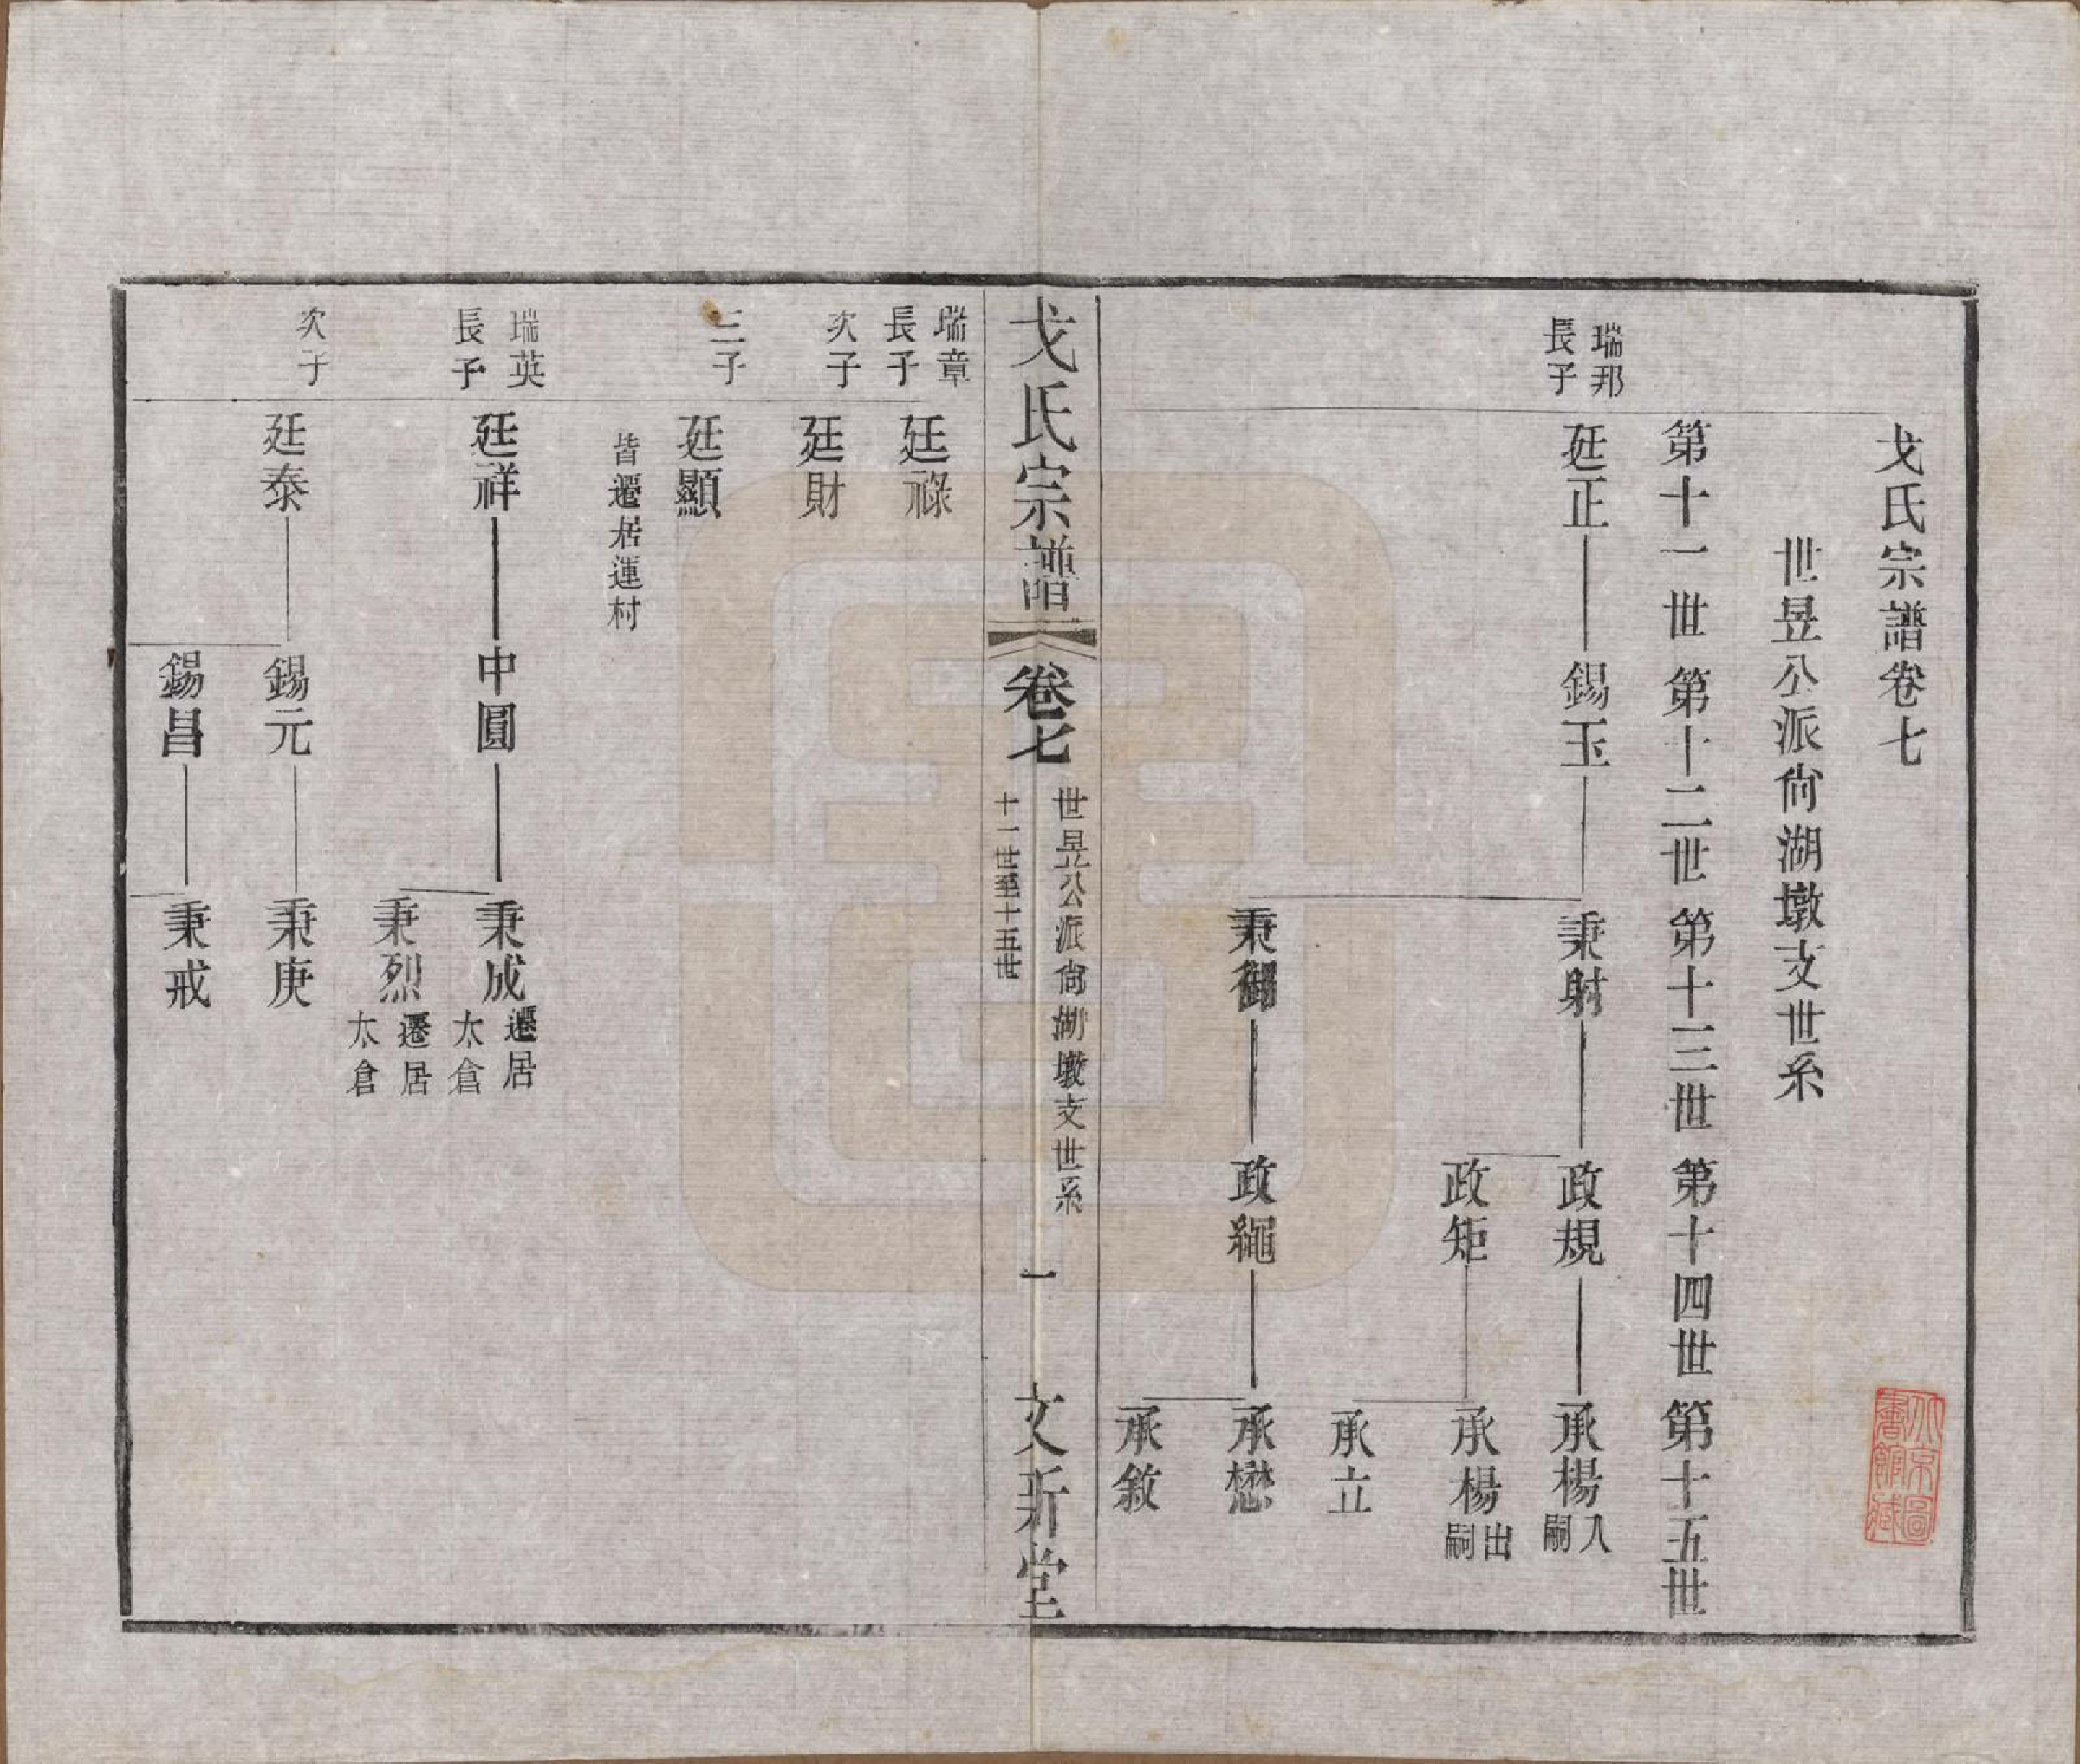 戈氏宗譜卷七
世昱公派尙湖墩支世系
第十一世 第十二世 第十三世 第十四世 第十五世
瑞邦
長子
廷正 錫玉 秉射 政規 承楊 入嗣
政矩 承楊 出嗣
承立
秉御 政繩 承懋
承敘
戈氏宗譜 卷七 世昱公派尙湖墩支世系 十一世至十五世 一 文新堂
瑞章
長子
廷祿
次子
廷財
三子
廷顯
皆遷居運村
瑞英
長子
廷祥 中圓 秉成 遷居太倉
秉烈 遷居太倉
次子
廷泰 錫元 秉庚
錫昌 秉戒
北京圖
書館藏